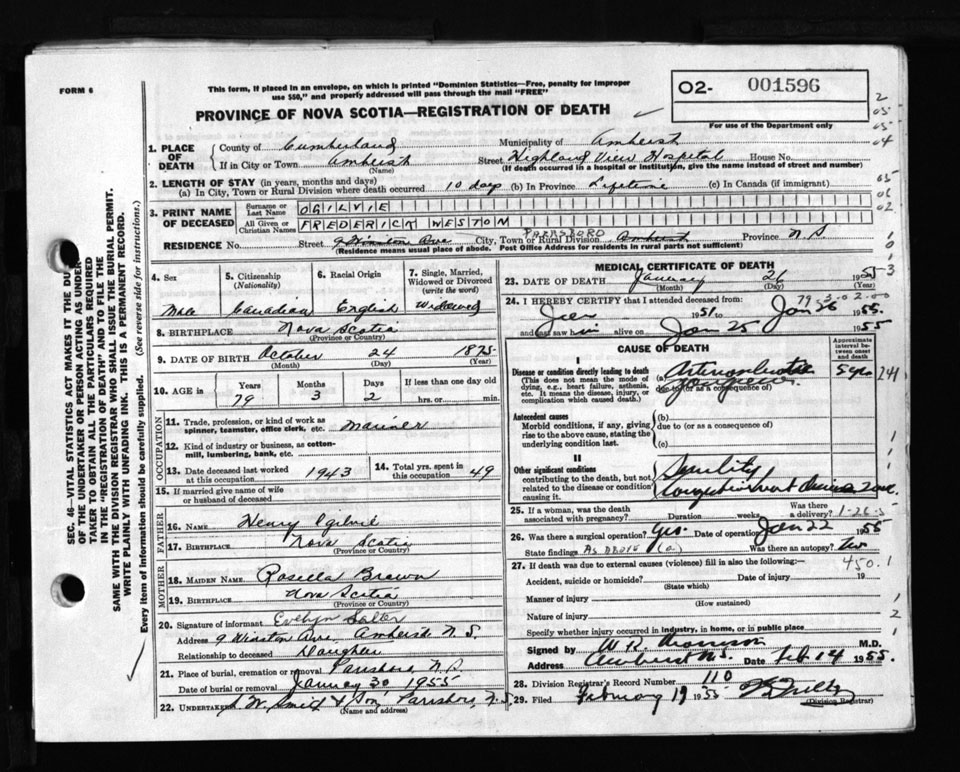 FORM 6
This form, if placed in an envelope, on which is printed "Dominion Statistics—Free, penalty for improper
use $50," and properly addressed will pass through the mail "FREE"
PROVINCE OF NOVA SCOTIA—REGISTRATION OF DEATH
O2- 001596
For use of the Department only
SEC. 46—VITAL STATISTICS ACT MAKES IT THE DU
OF THE UNDERTAKER OR PERSON ACTING AS UNDER-
TAKER TO OBTAIN ALL THE PARTICULARS REQUIRED
IN THE "REGISTRATION OF DEATH" AND TO FILE THE
SAME WITH THE DIVISION REGISTRAR WHO SHALL ISSUE THE BURIAL PERMIT.
WRITE PLAINLY WITH UNFADING INK. THIS IS A PERMANENT RECORD.
Every item of information should be carefully supplied. (See reverse side for instructions.)
1. PLACE OF DEATH
County of Cumberland Municipality of Amherst
If in City or Town Amherst (Name) Street Highland View Hospital House No.
(If death occurred in a hospital or institution, give the name instead of street and number)
2. LENGTH OF STAY (in years, months and days)
(a) In City, Town or Rural Division where death occurred 10 days (b) In Province Lifetime (c) In Canada (if immigrant)
3. PRINT NAME OF DECEASED
Surname or Last Name OGILVIE
All Given or Christian Names FREDERICK WESTON
PARRSBORO
RESIDENCE No. Street 9 Winston Ave City, Town or Rural Division Amherst Province N S
(Residence means usual place of abode. Post Office Address for residents in rural parts not sufficient)
4. Sex Male
5. Citizenship (Nationality) Canadian
6. Racial Origin English
7. Single, Married, Widowed or Divorced (write the word) Widowed
8. BIRTHPLACE Nova Scotia
(Province or Country)
9. DATE OF BIRTH October 24 1875
(Month) (Day) (Year)
10. AGE in Years Months Days If less than one day old
79 3 2 hrs. or min.
OCCUPATION
11. Trade, profession, or kind of work as spinner, teamster, office clerk, etc. Mariner
12. Kind of industry or business, as cotton-mill, lumbering, bank, etc.
13. Date deceased last worked at this occupation 1943
14. Total yrs. spent in this occupation 49
15. If married give name of wife or husband of deceased
FATHER
16. NAME Henry Ogilvie
17. BIRTHPLACE Nova Scotia
(Province or Country)
MOTHER
18. MAIDEN NAME Rosella Brown
19. BIRTHPLACE Nova Scotia
(Province or Country)
20. Signature of informant Evelyn Salter
Address 9 Winston Ave. Amherst N. S.
Relationship to deceased Daughter
21. Place of burial, cremation or removal Parrsboro N.S.
Date of burial or removal January 30, 1955
22. Undertaker W. Smith & Son, Parrsboro, N.S.
(Name and address)
MEDICAL CERTIFICATE OF DEATH
23. DATE OF DEATH January 26 1955
(Month) (Day)
24. I HEREBY CERTIFY that I attended deceased from:
1951 to Jan 26 1955.
and last saw him alive on Jan 25 1955
CAUSE OF DEATH
Approximate interval between onset and death
I
Disease or condition directly leading to death
(This does not mean the mode of dying, e.g., heart failure, asthenia, etc. It means the disease, injury, or complication which caused death.)
(a) 5 yrs
due to (or as a consequence of)
Antecedent causes
Morbid conditions, if any, giving rise to the above cause, stating the underlying condition last.
(b)
due to (or as a consequence of)
(c)
II
Other significant conditions
contributing to the death, but not related to the disease or condition causing it.
Senility
25. If a woman, was the death associated with pregnancy? Duration weeks Was there a delivery?
26. Was there a surgical operation? Yes Date of operation Jan 22 1955
State findings As above (a) Was there an autopsy? No
27. If death was due to external causes (violence) fill in also the following:— 450.1
Accident, suicide or homicide? Date of injury 19
(State which)
Manner of injury
(How sustained)
Nature of injury
Specify whether injury occurred in industry, in home, or in public place
Signed by W. R. M.D.
Address Amherst N.S. Date Feb 14 1955.
28. Division Registrar's Record Number 110
29. Filed February 19 1955
(Division Registrar)